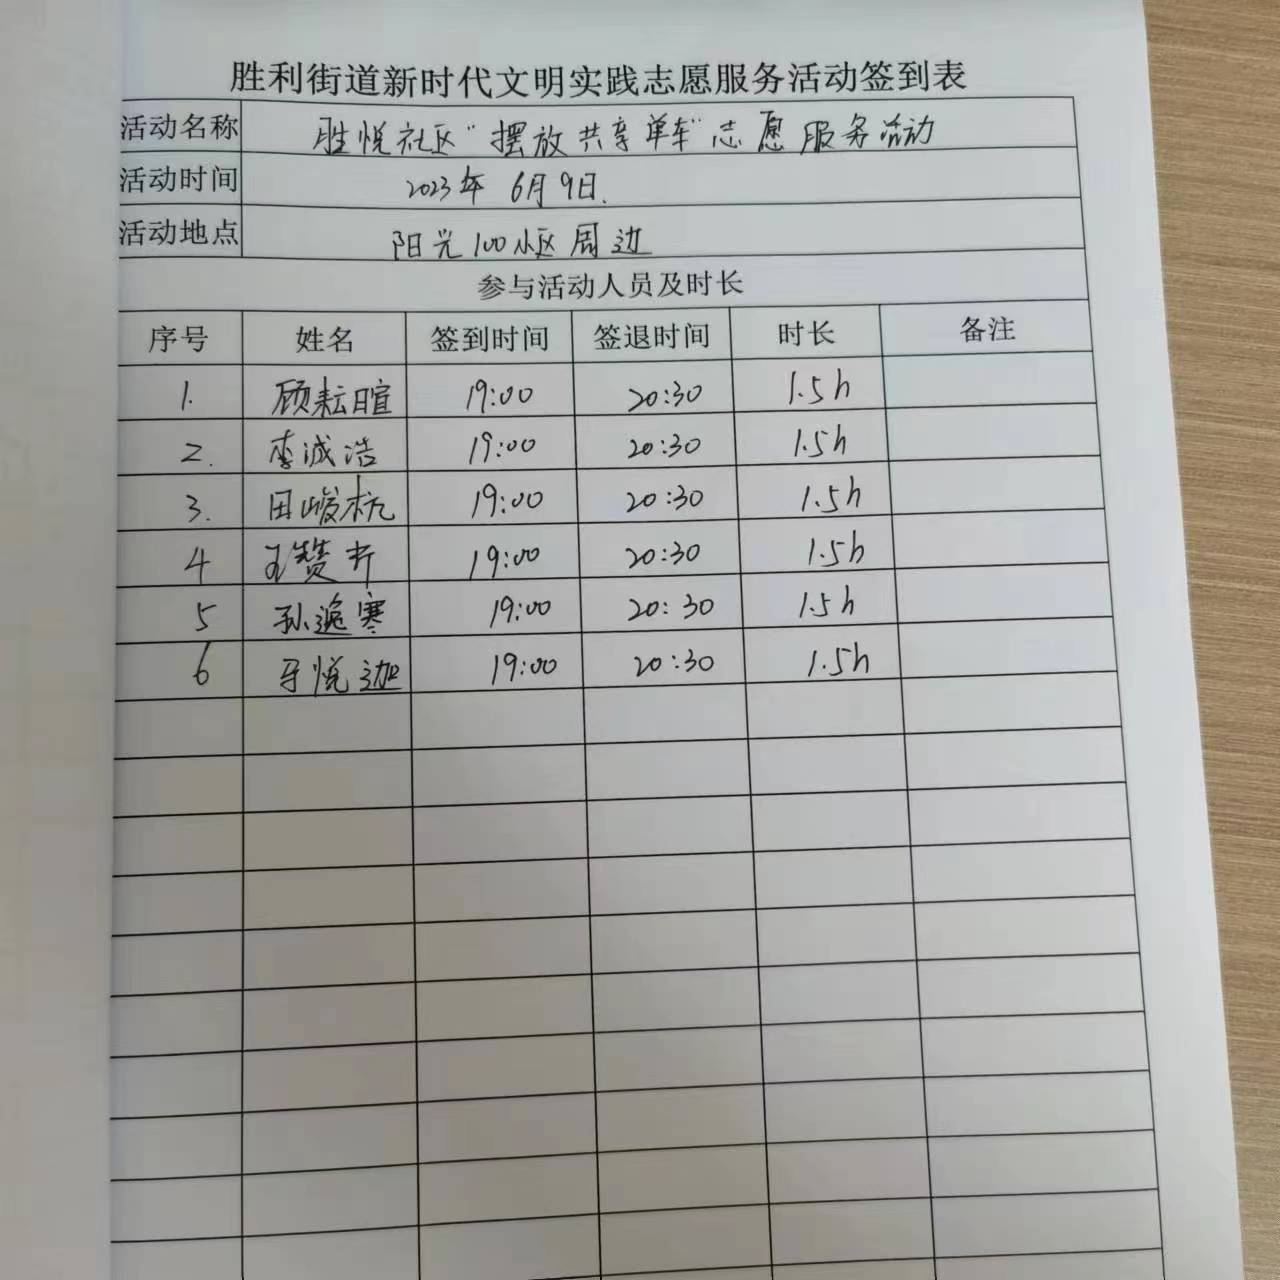 胜利街道新时代文明实践志愿服务活动签到表
活动名称 胜悦社区“摆放共享单车”志愿服务活动
活动时间 2023年 6月9日.
活动地点 阳光100小区周边
参与活动人员及时长
序号 姓名 签到时间 签退时间 时长 备注
1. 顾耘暄 19:00 20:30 1.5h
2. 李诚浩 19:00 20:30 1.5h
3. 田峻杭 19:00 20:30 1.5h
4 王赞 19:00 20:30 1.5h
5 孙逸寒 19:00 20:30 1.5h
6 悦迦 19:00 20:30 1.5h